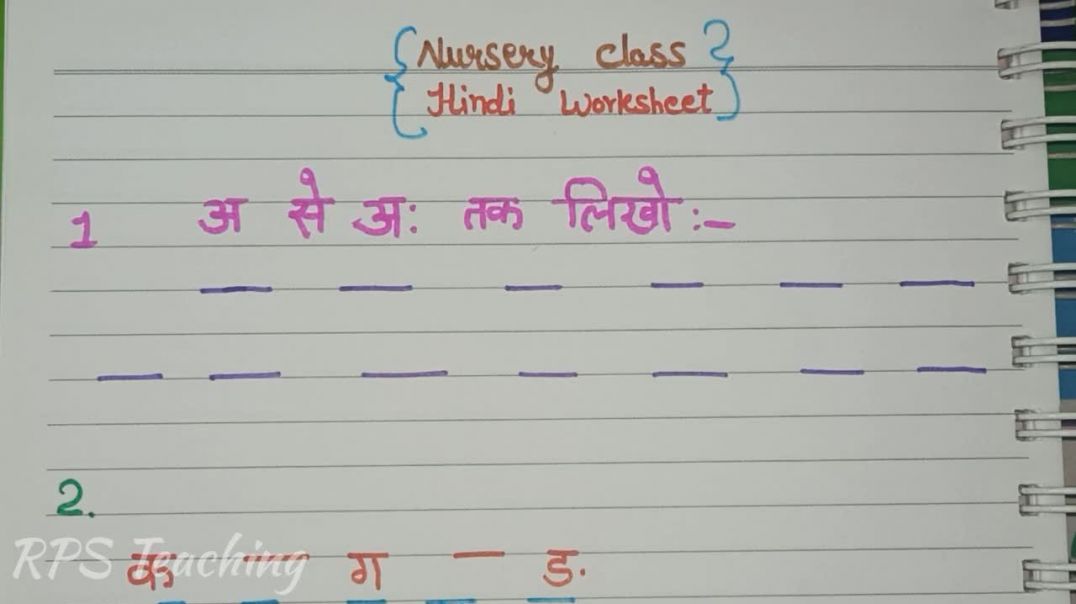 {Nursery class}
{Hindi Worksheet}
1 अ से अः तक लिखो :-
— — — — — —
— — — — — — —
2.
क — ग — ङ
RPS Teaching